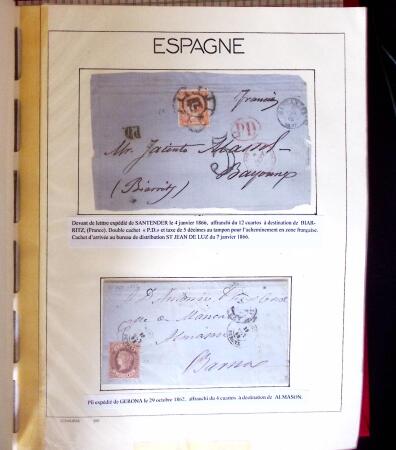 ESPAGNE
Francia
P.D.
Mr. Jacinto Massol
Bayonne
(Biarritz)
Devant de lettre expédié de SANTENDER le 4 janvier 1866, affranchi du 12 cuartos à destination de BIAR-
RITZ, (France). Double cachet « P.D.» et taxe de 5 décimes au tampon pour l'acheminement en zone française.
Cachet d'arrivée au bureau de distribution ST JEAN DE LUZ du 7 janvier 1866.
Barna
Pli expédié de GERONA le 29 octobre 1862, affranchi du 4 cuartos à destination de ALMASON.